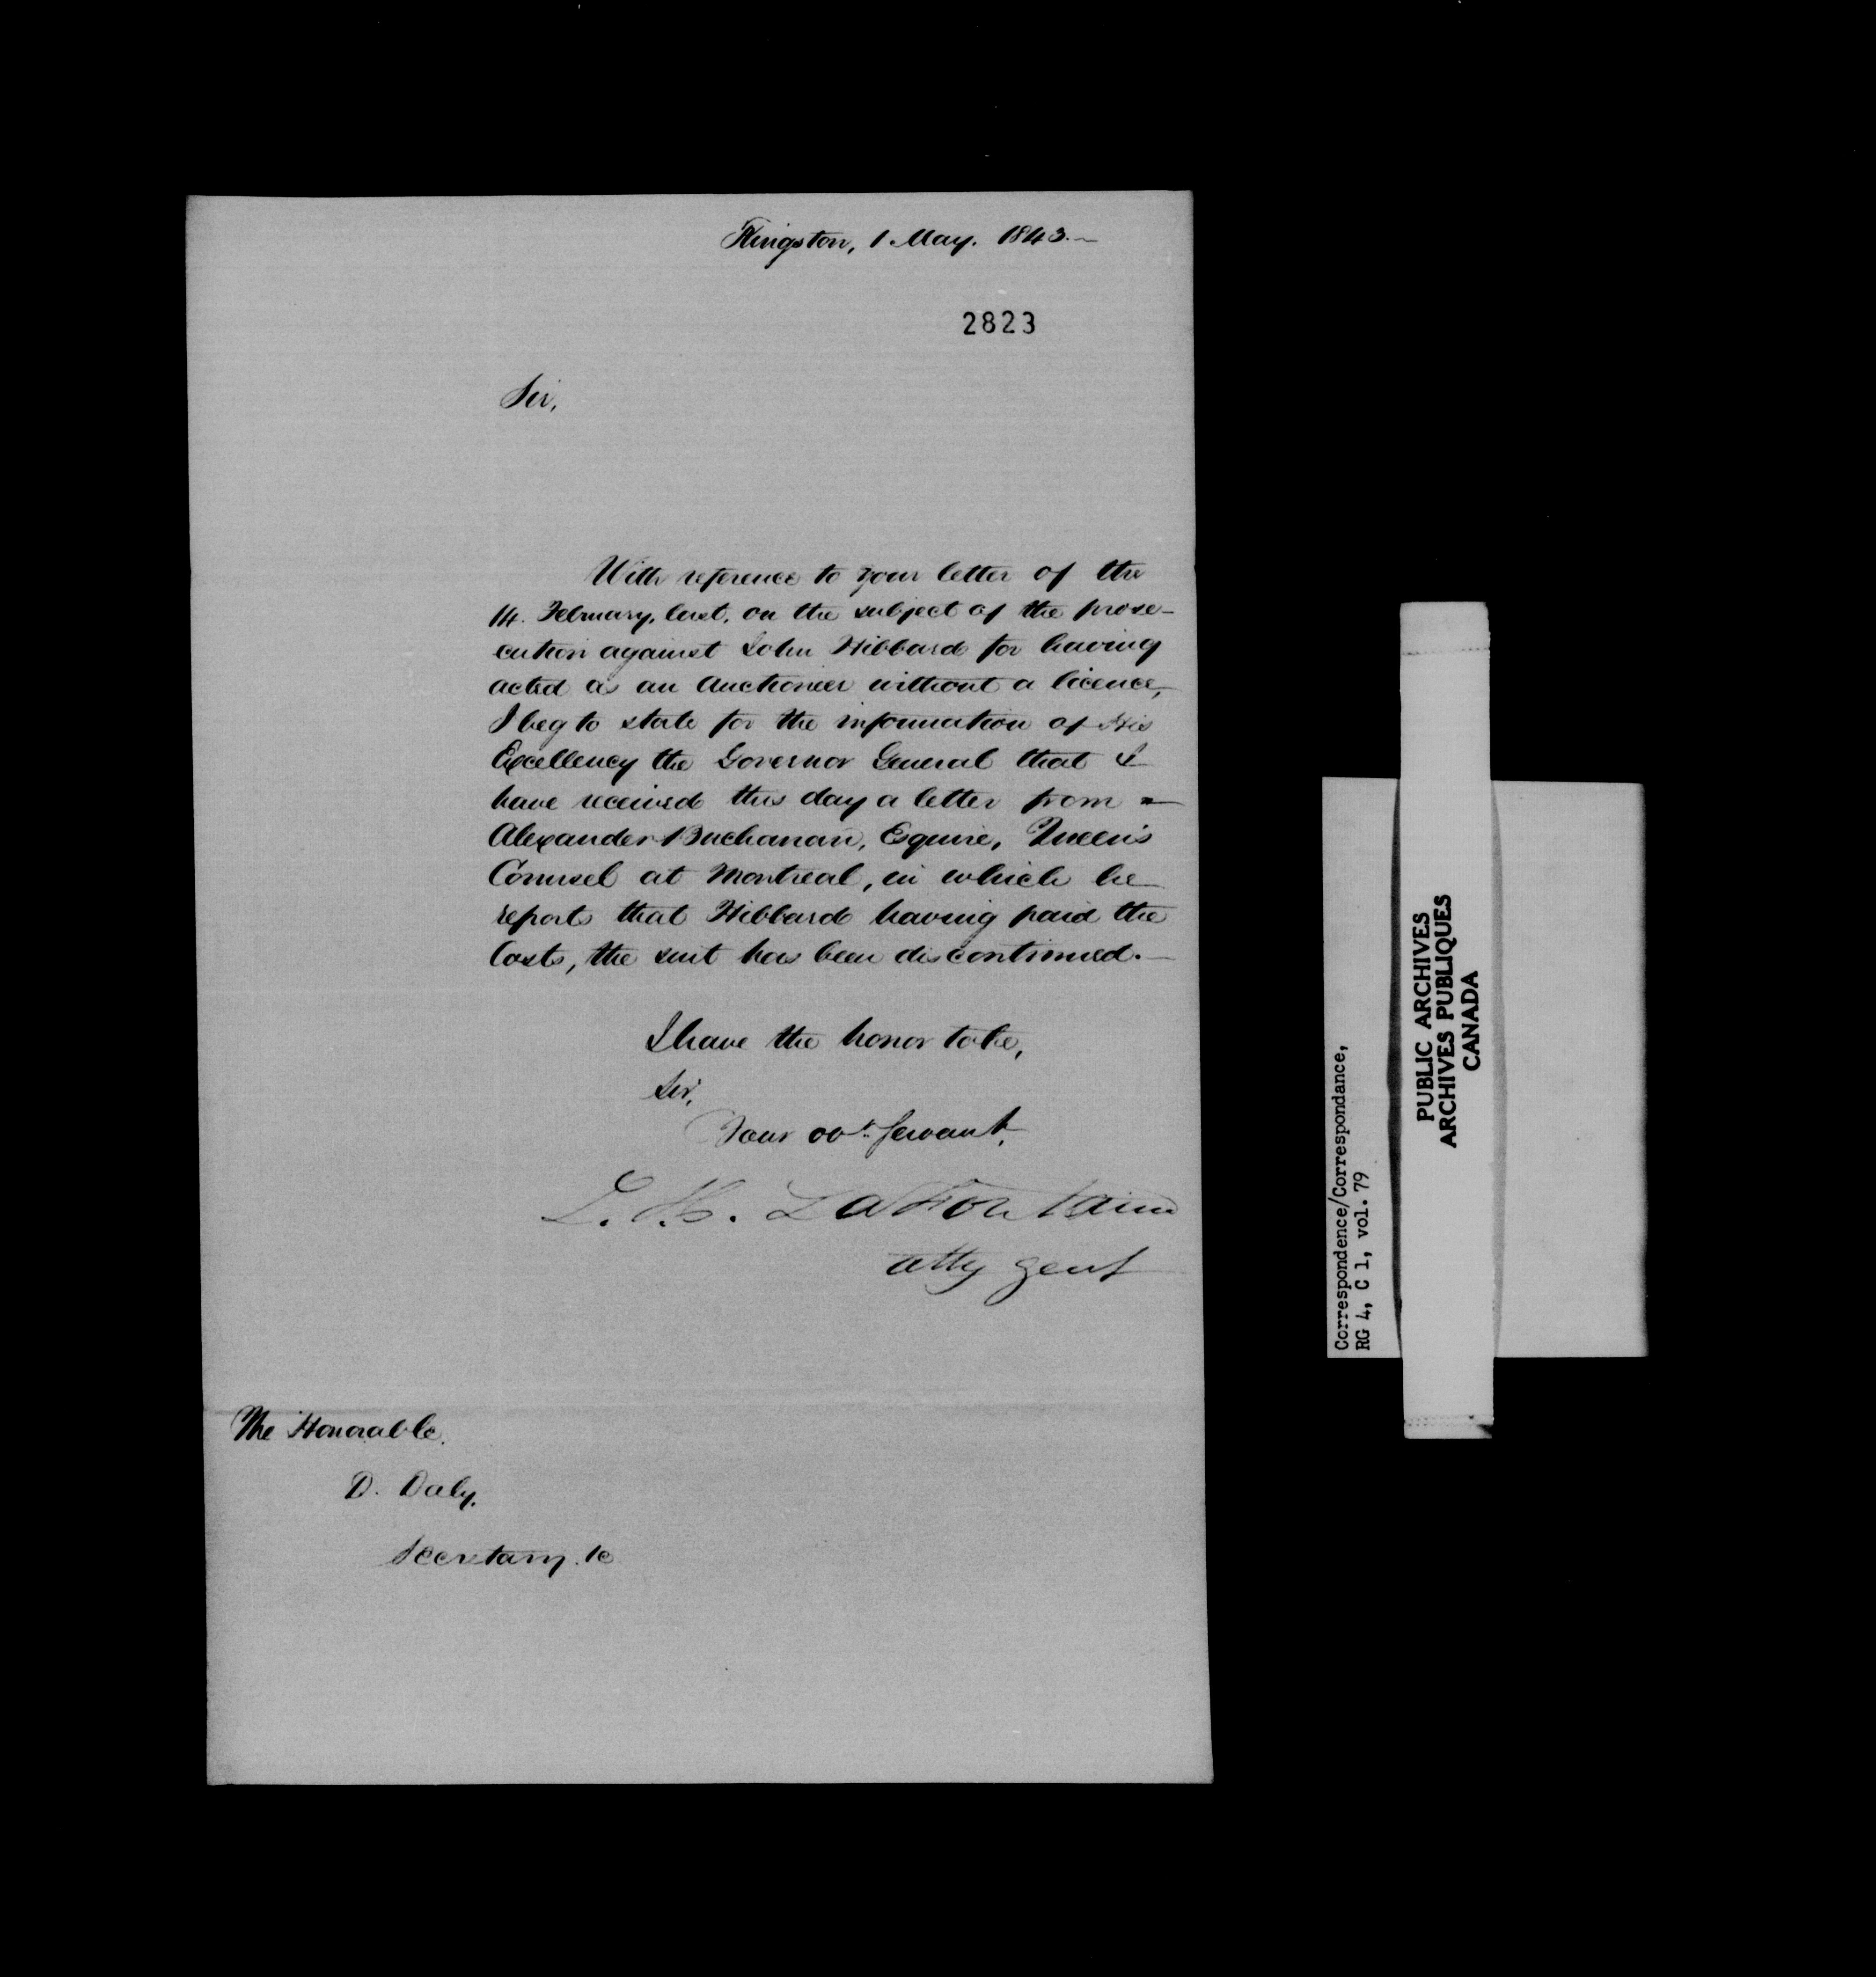 Kingston, 1 May. 1843.—
2823
Sir,
With reference to your letter of the
14. February, last, on the subject of the prose-
cution against John Hibbard for having
acted as an Auctioneer without a licence,
I beg to state for the information of His
Excellency the Governor General that I
have received this day a letter from
Alexander Buchanan, Esquire, Queen's
Counsel at Montreal, in which he
reports that Hibbard having paid the
Costs, the suit has been discontinued.—
I have the honor to be,
Sir,
Your obt. Servant,
L. H. LaFontaine
Atty Genl
The Honorable
D. Daly,
Secretary. &c
Correspondence/Correspondance,
RG 4, C 1, vol. 79
PUBLIC ARCHIVES
ARCHIVES PUBLIQUES
CANADA